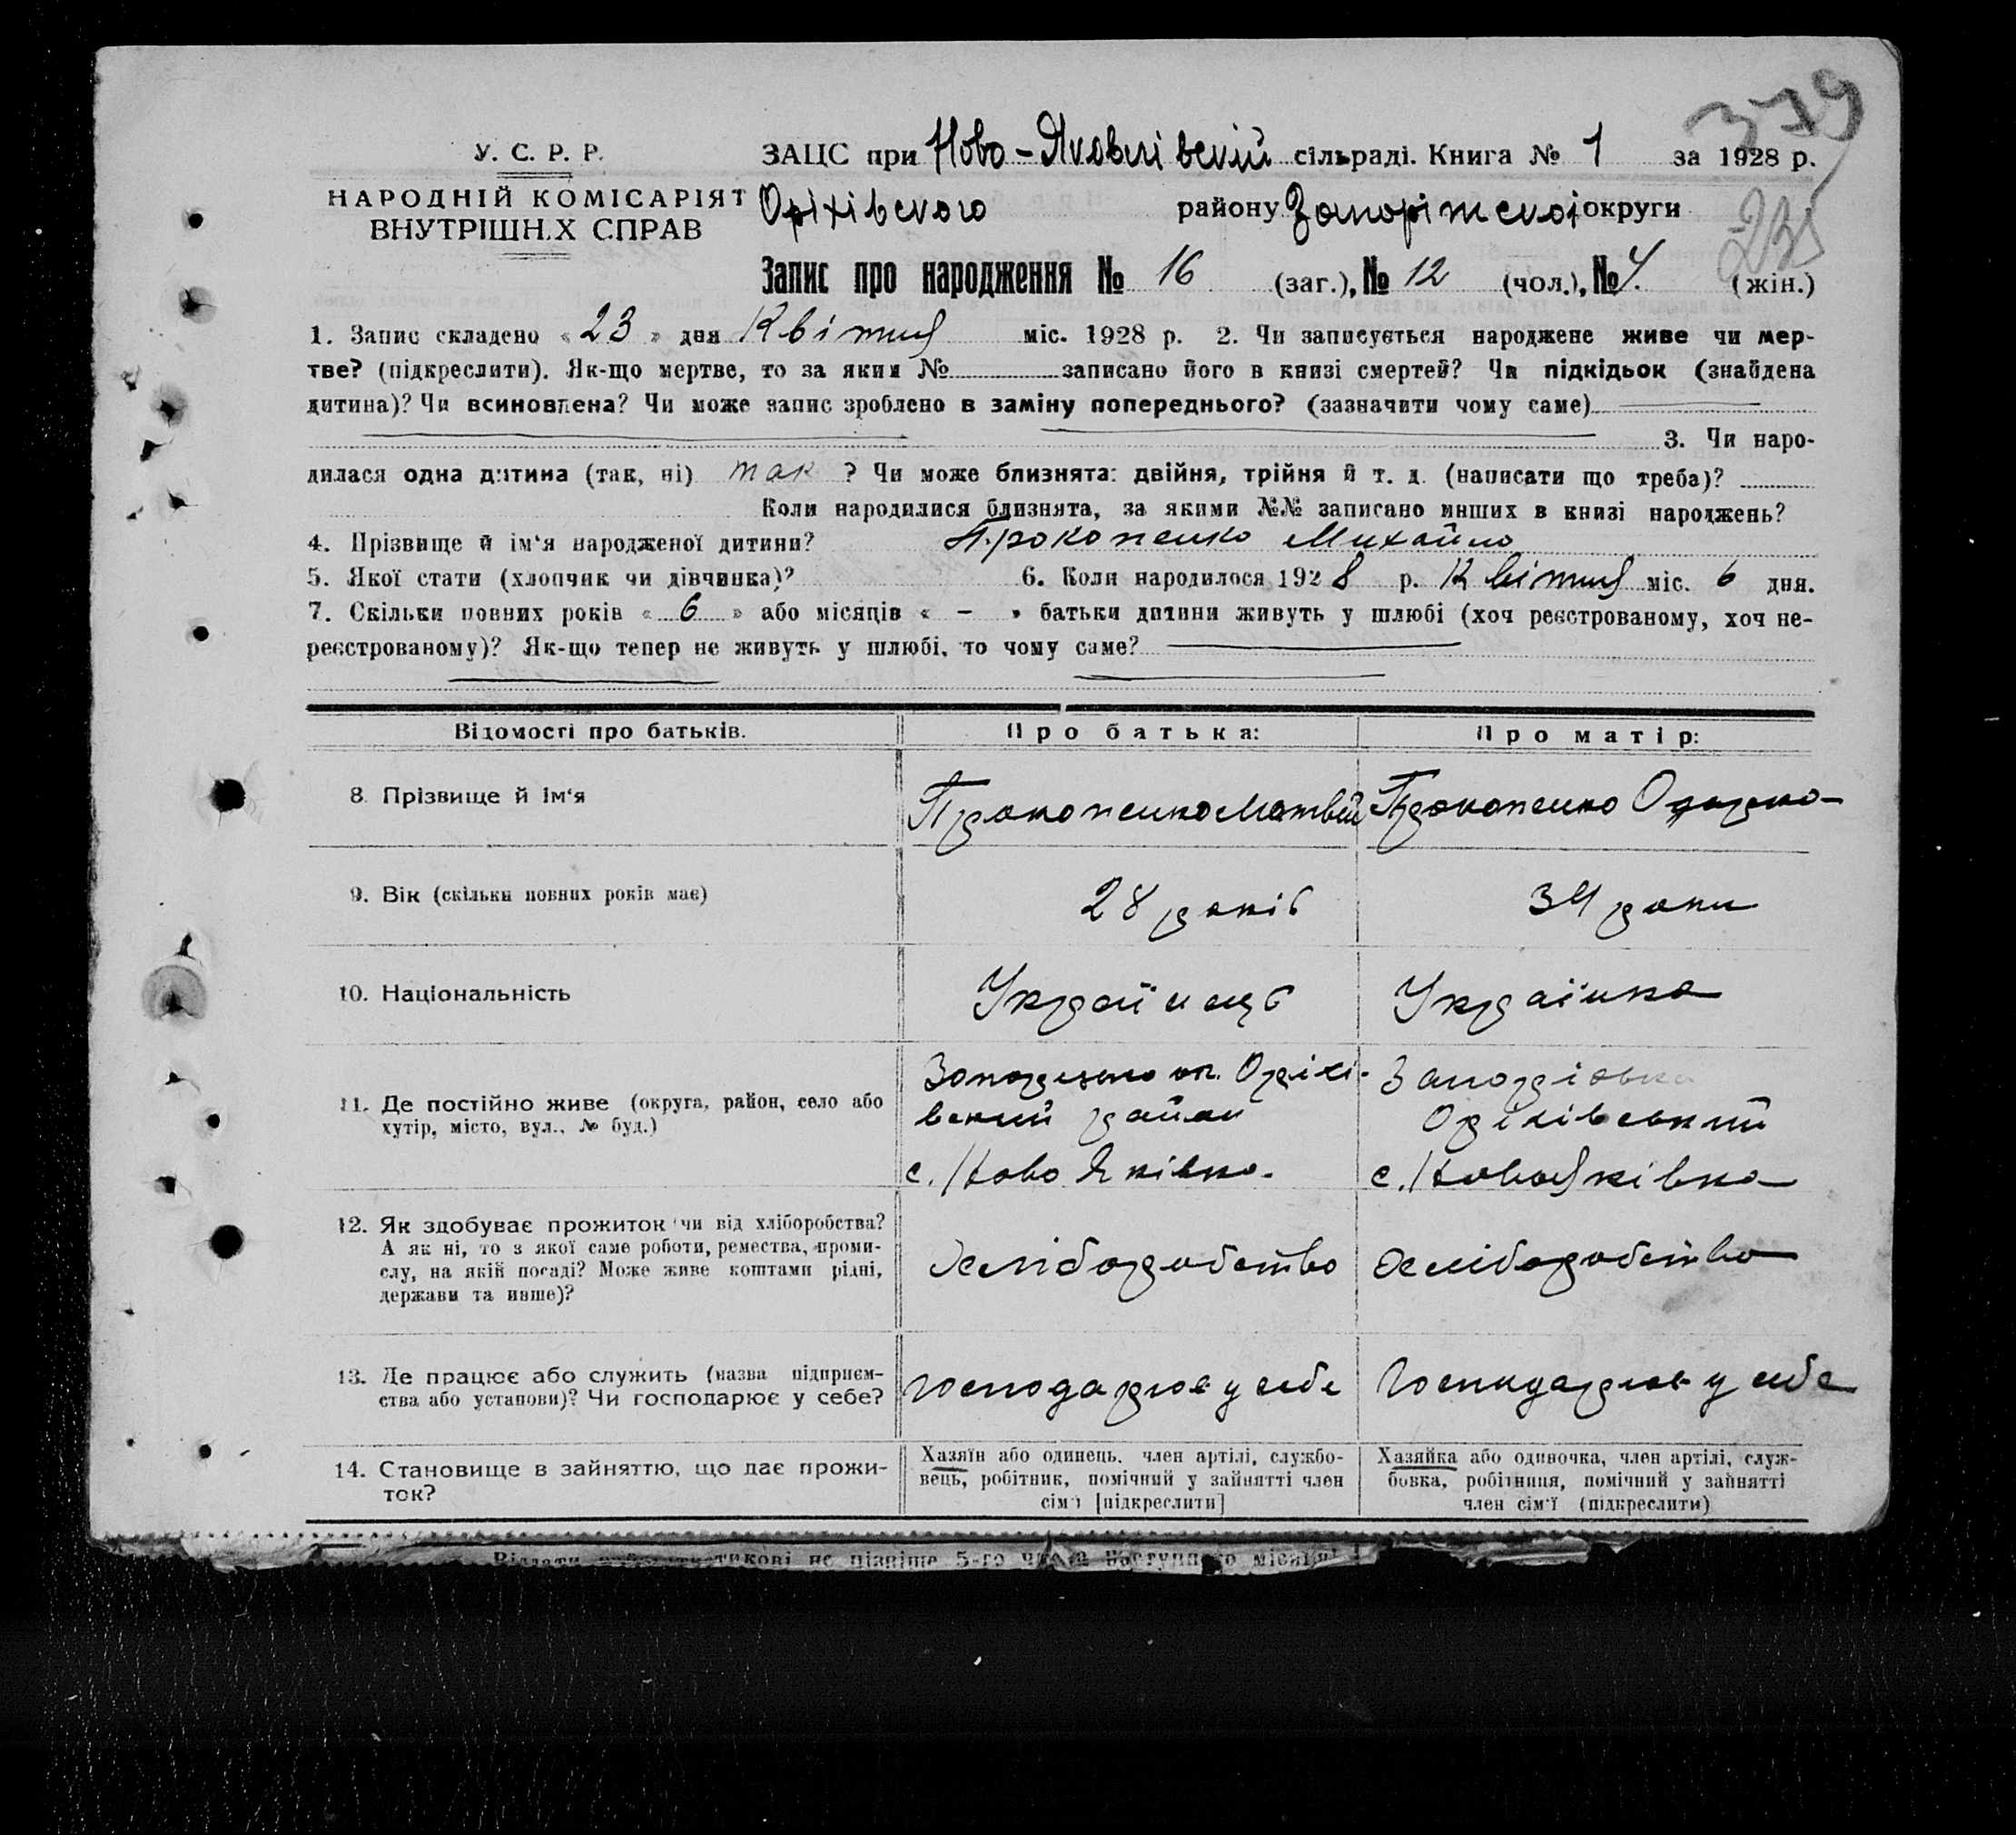 379
У. С. Р. Р.
НАРОДНІЙ КОМІСАРІЯТ
ВНУТРІШНІХ СПРАВ
ЗАЦС при Ново-Яковлівській сільраді. Книга № 1 за 1928 р.
Оріхівського району Запоріжської округи
Запис про народження № 16 (заг.), № 12 (чол.), № 4. (жін.)
1. Запис складено «23» дня Квітня міс. 1928 р. 2. Чи записується народжене живе чи мер-
тве? (підкреслити). Як-що мертве, то за яким № записано його в книзі смертей? Чи підкідьок (знайдена
дитина)? Чи всиновлена? Чи може запис зроблено в заміну попереднього? (зазначити чому саме)
3. Чи наро-
дилася одна дитина (так, ні) так ? Чи може близнята: двійня, трійня й т. д. (написати що треба)?
Коли народилися близнята, за якими №№ записано инших в книзі народжень?
4. Прізвище й ім'я народженої дитини? Прокопенко Михайло
5. Якої стати (хлопчик чи дівчинка)? 6. Коли народилося 1928 р. Квітня міс. 6 дня.
7. Скільки повних років «6» або місяців « – » батьки дитини живуть у шлюбі (хоч реєстрованому, хоч не-
реєстрованому)? Як-що тепер не живуть у шлюбі, то чому саме?
Відомості про батьків. Про батька: Про матір:
8. Прізвище й ім'я Прокопенко Матвій Прокопенко Одарка
9. Вік (скільки повних років має) 28 років 34 роки
10. Національність Українець Українка
11. Де постійно живе (округа, район, село або
хутір, місто, вул., № буд.)
ок. Оріхі-
вський район
с. Ново Яківка.
Оріхівський
с. Ново Яківка
12. Як здобуває прожиток чи від хліборобства?
А як ні, то з якої саме роботи, ремества, проми-
слу, на якій посаді? Може живе коштами рідні,
держави та инше)?
Хліборобство Хліборобство
13. Де працює або служить (назва підприєм-
ства або установи)? Чи господарює у себе?
господарює у себе Господарює у себе
14. Становище в зайняттю, що дає прожи-
ток?
Хазяїн або одинець, член артілі, службо-
вець, робітник, помічний у зайнятті член
сім'ї [підкреслити]
Хазяйка або одиночка, член артілі, служ-
бовка, робітниця, помічний у зайнятті
член сім'ї (підкреслити)
не пізніше 5-го числа наступного місяця!